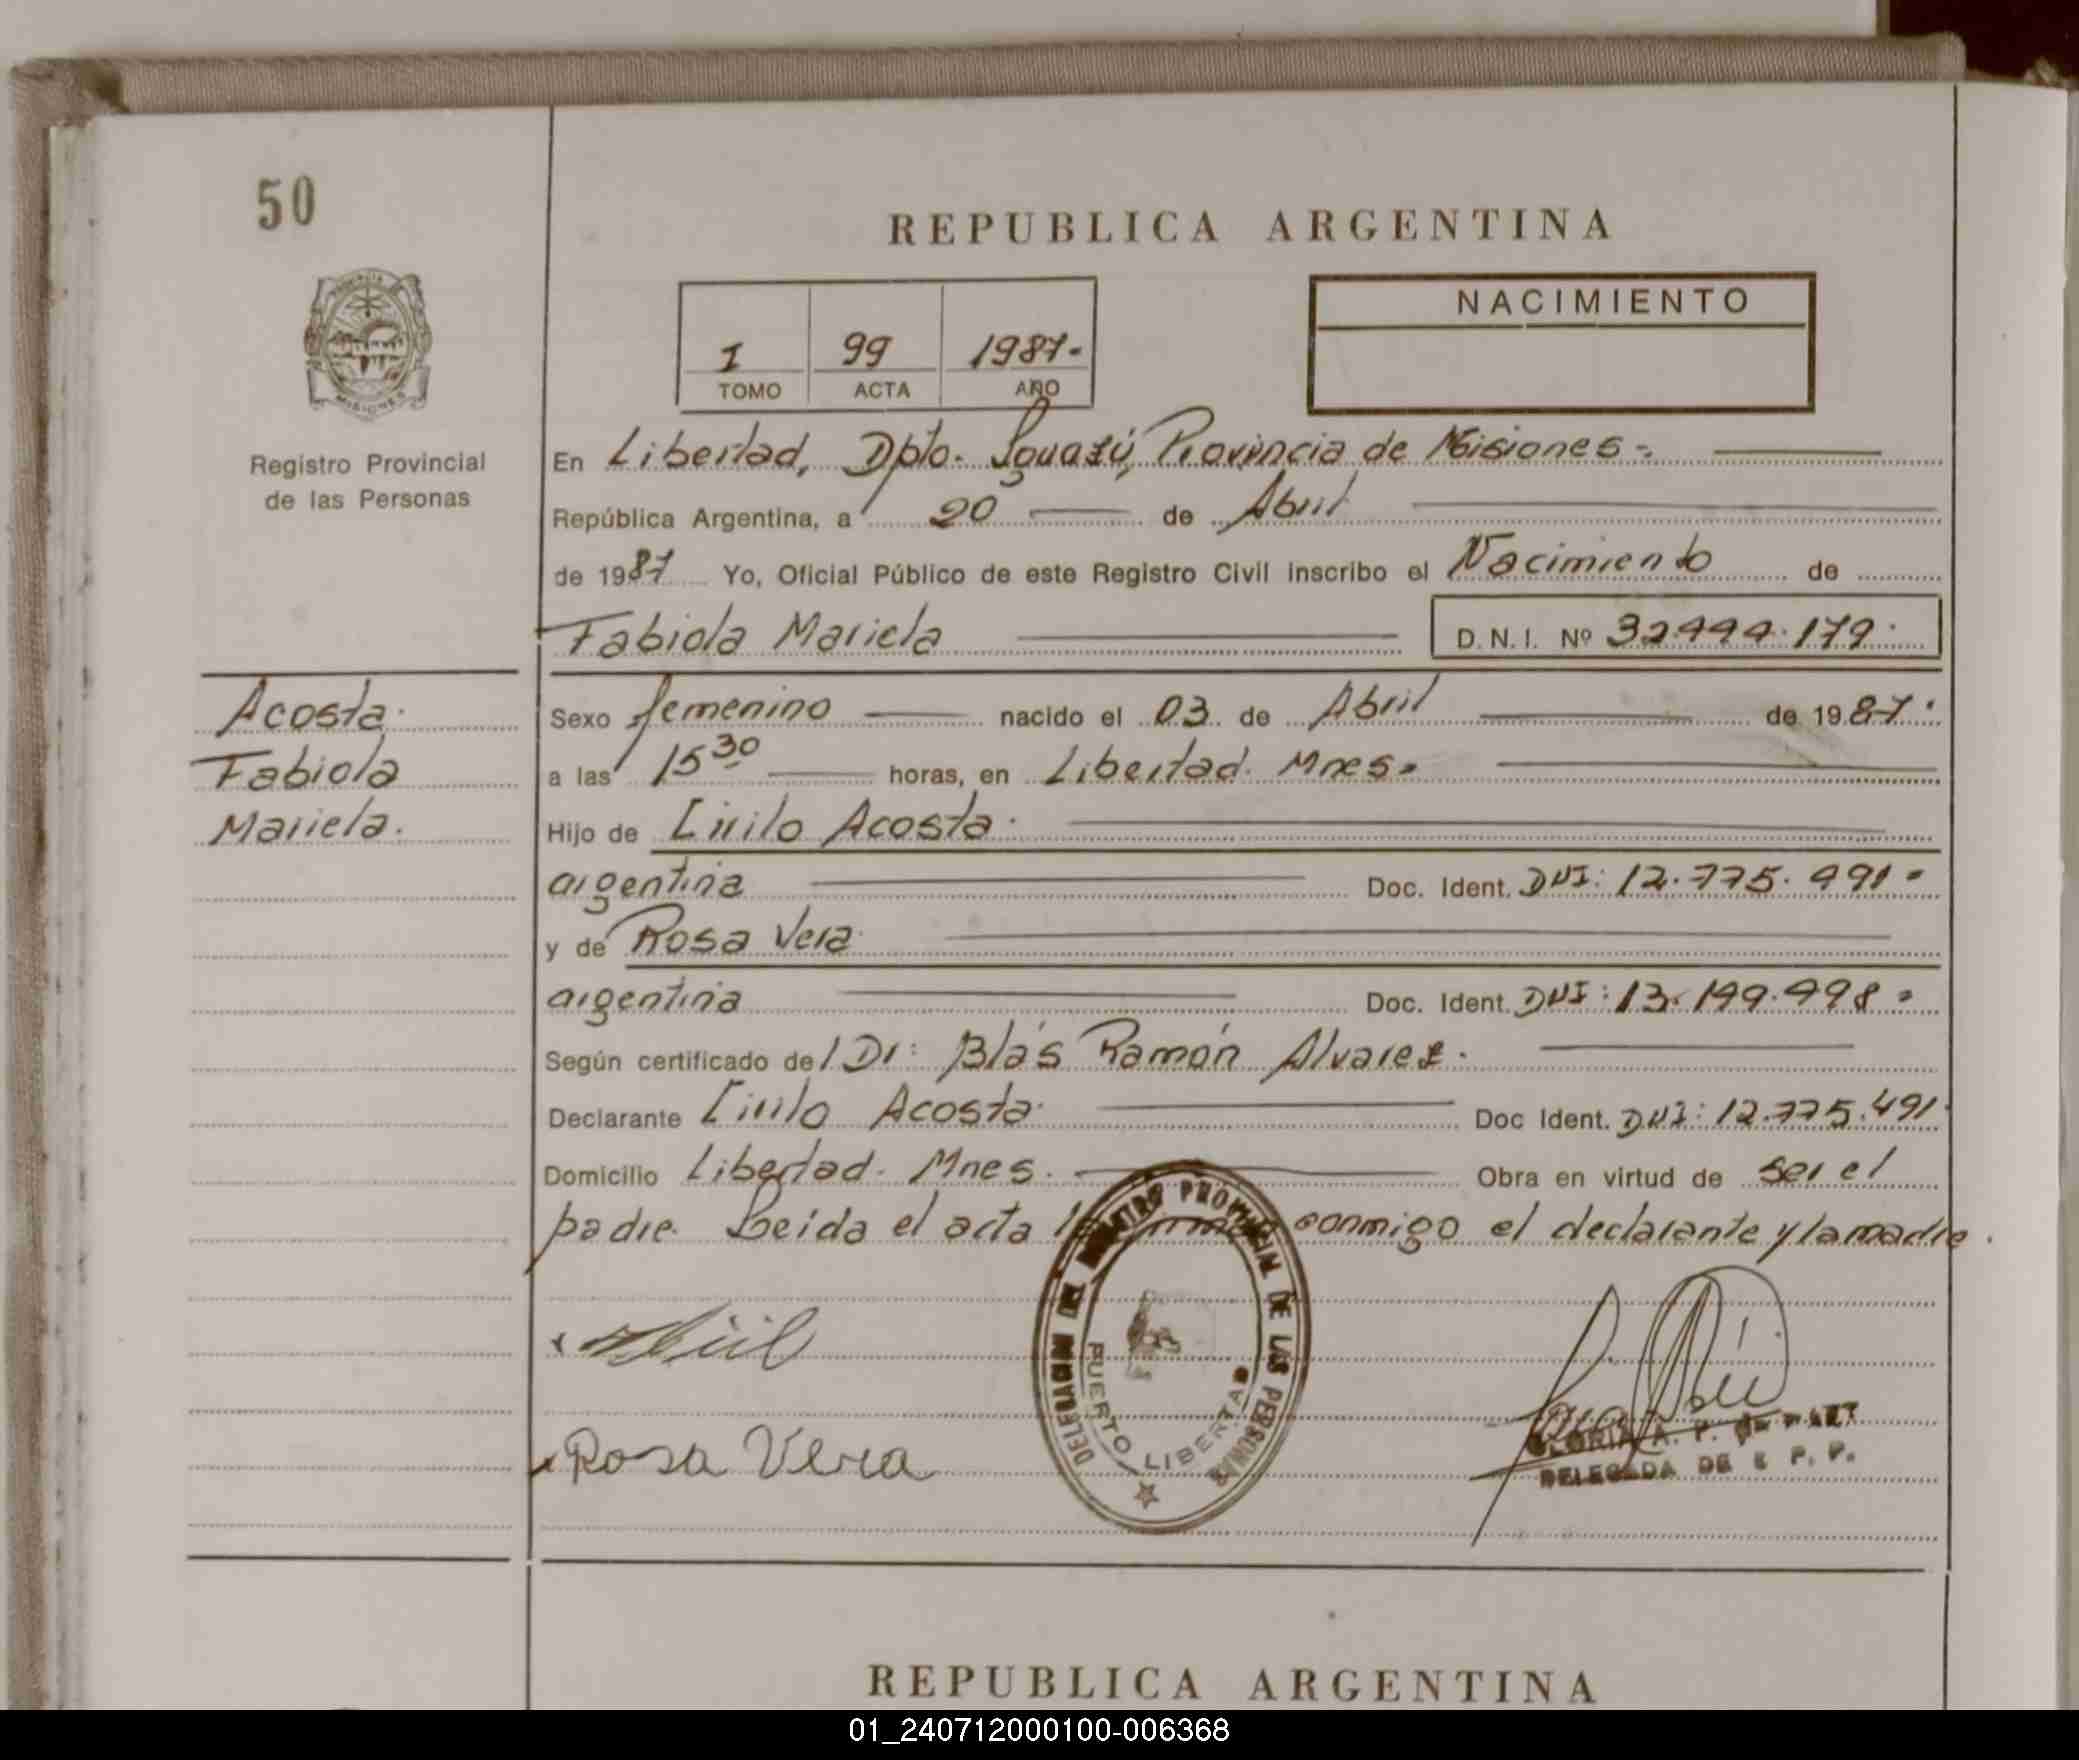 50
REPUBLICA ARGENTINA
NACIMIENTO
I 99 1987.-
TOMO ACTA AÑO
Registro Provincial
de las Personas
En Libertad, Dpto. Iguazú, Provincia de Misiones-.
República Argentina, a 20 de Abril
de 1987 Yo, Oficial Público de este Registro Civil inscribo el Nacimiento de
Fabiola Mariela D.N.I. Nº
Acosta.
Fabiola
Mariela.
Sexo femenino nacido el 03 de Abril de 1987.
a las 15 30 horas, en Libertad. Mnes.
Hijo de Cirilo Acosta.
argentina Doc. Ident. DNI: 12.775.491-
y de Rosa Vera.
argentina Doc. Ident. DNI: 13.199.998-
Según certificado del Dr: Blás Ramón Alvarez.
Declarante Cirilo Acosta. Doc Ident. DNI: 12.775.491.
Domicilio Libertad. Mnes. Obra en virtud de ser el
padre. Leida el acta la firman conmigo el declarante y la madre.
DELEGACION DEL REGISTRO PROVINCIAL DE LAS PERSONAS
PUERTO LIBERTAD
Rosa Vera
GLORIA A. P. DE
DELEGADA DE R. P. P.
REPUBLICA ARGENTINA
01_240712000100-006368